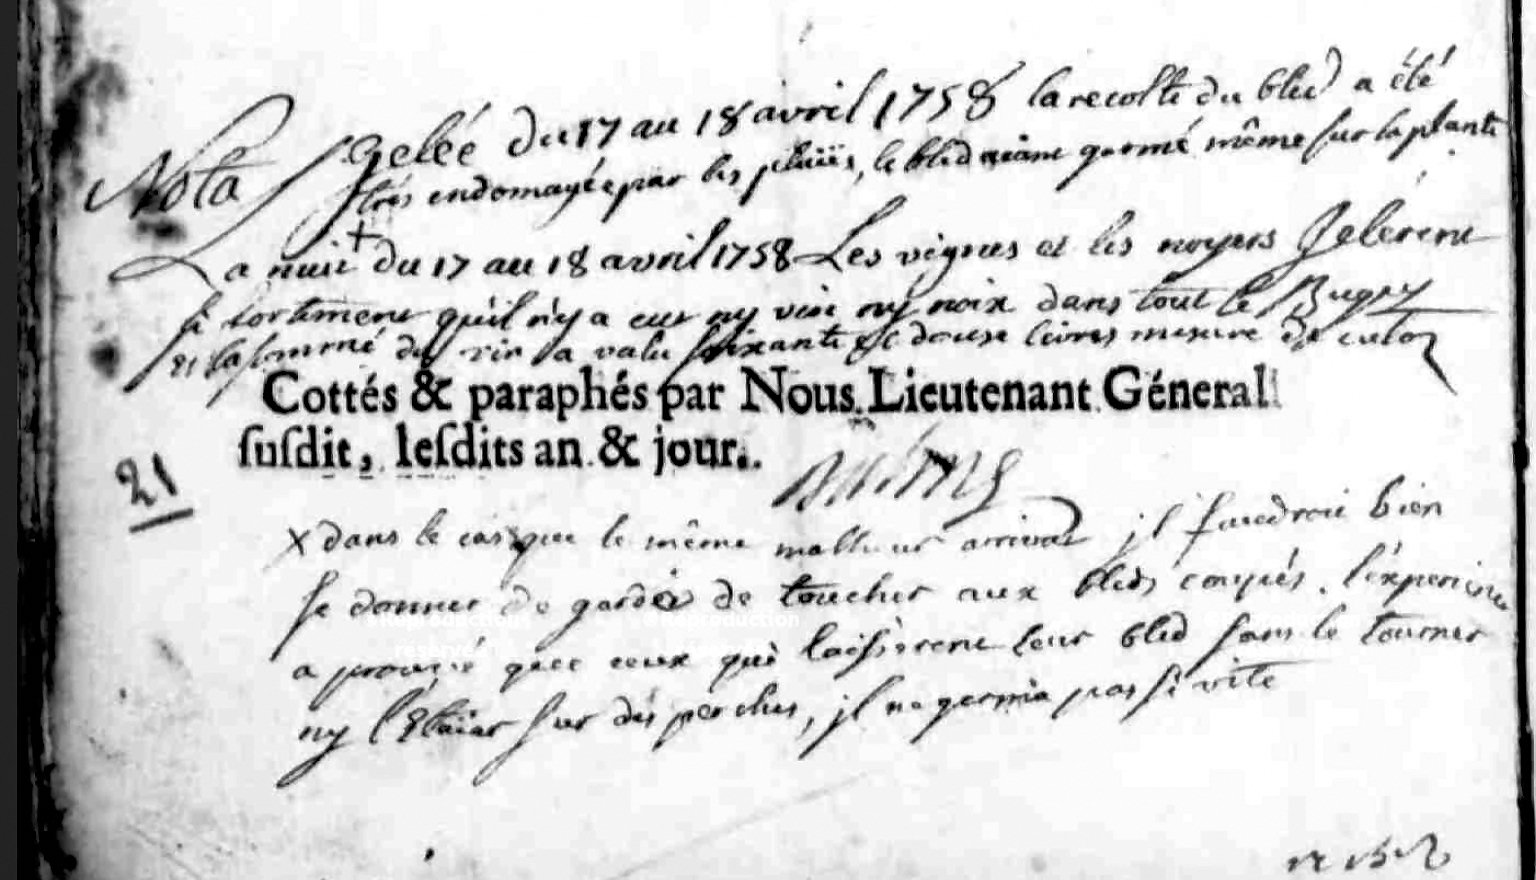 Nota
Gelée du 17 au 18 avril 1758 la recolte du bled a été
trés endomagée par les pluïes, le bled aiant germé même sur la plante
La nuit du 17 au 18 avril 1758 Les vignes et les noyers Gelérent
si fortement qu'il n'y a eut ny vin ny noix dans tout le Bugey
et la du vin a valu soixante et douse livres mesure de culoz
Cottés & paraphés par Nous Lieutenant Géneral
ſuſdit, leſdits an & jour.
21
x dans le cas que le même malheur arrivat jl faudroit bien
se donner de garde de toucher aux bleds coupés. l'experience
a prouvé que ceux qui laissèrent leur bled sans le tourner
ny l'Etaier sur des perches, jl ne germa pas si vite